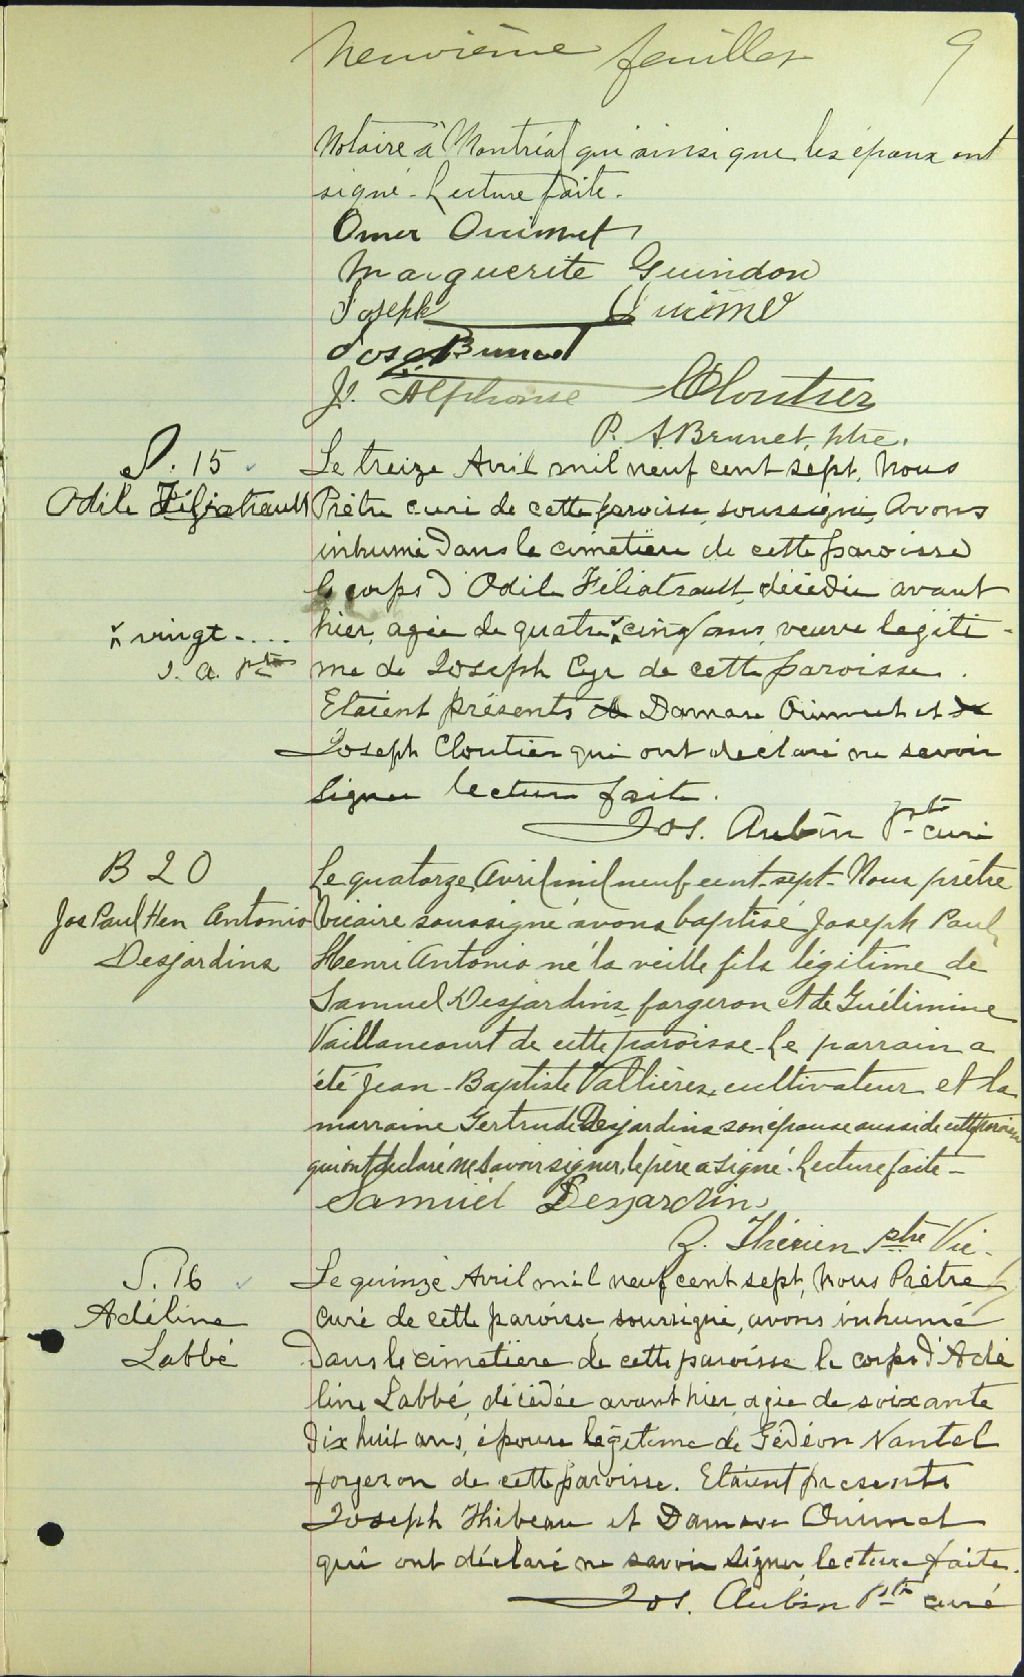 Neuvième feuillet 9
Notaire à Montréal qui ainsi que les époux ont
signé - Lecture faite.
Omer Ouimet
Marguerite Guindon
Joseph Ouimet
Jos Brunet
J. Alphonse Cloutier
P. A Brunet, ptre.
S. 15
Odile Féliatrault
Le treize Avril mil neuf cent sept, Nous
Prêtre curé de cette paroisse, soussigné, Avons
inhumé dans le cimetière de cette paroisse
le corps d'Odile Féliatrault, décédée avant
hier, agée de quatre cinq ans, veuve légiti-
vingt - ...
J. A. ptre
me de Joseph Cyr de cette paroisse.
Etaient présents de Damase Ouimet et de
Joseph Cloutier qui ont déclaré ne savoir
signer lecture faite.
Jos. Aubin Ptre curé
B 20
Jos Paul Hen Antonio
Desjardins
Le quatorze Avril mil neuf cent-sept - Nous prêtre
Vicaire soussigné avons baptisé Joseph Paul
Henri Antonio né la veille fils légitime de
Samuel Desjardins forgeron et de Guélimine
Vaillancourt de cette paroisse - Le parrain a
été Jean-Baptiste Vallières, cultivateur et la
marraine Gertrude Desjardins son épouse aussi de cette paroisse
qui ont declaré ne savoir signer, le père a signé - Lecture faite -
Samuël Desjardins
Z. Thérien ptre Vic.
S. 16
Adéline
Labbé
Le quinze Avril mil neuf cent sept, Nous Prêtre
curé de cette paroisse soussigné, avons inhumé
dans le cimetière de cette paroisse le corps d'Adé
line Labbé, décédée avant hier, agée de soixante
dix huit ans, épouse légitime de Gédéon Nantel
forgeron de cette paroisse. Etaient présents
Joseph Thibeau et Damase Ouimet
qui ont déclaré ne savoir signer, lecture faite.
Jos. Aubin Ptre curé